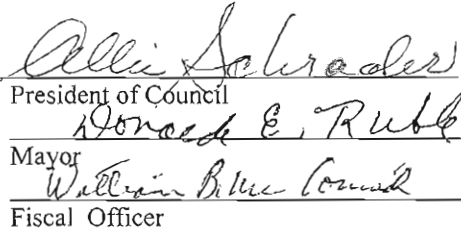 Allie Schrader
President of Council
Donald E. Ruble
Mayor
William B. McConnick
Fiscal Officer